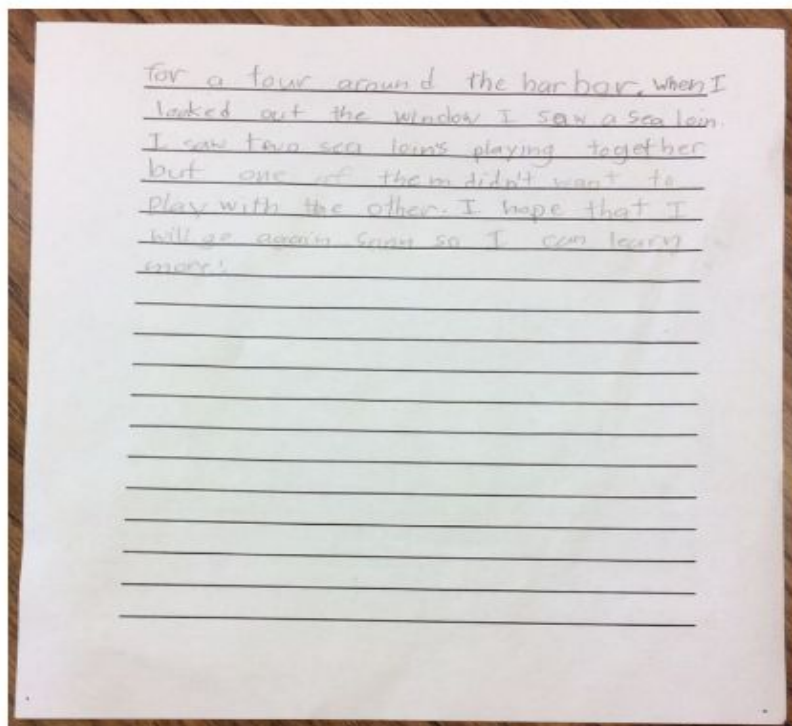 for a tour around the harbor. when I
looked out the window I saw a sea loin.
I saw two sea loin's playing together
but one of them didn't want to
play with the other. I hope that I
will go again soon so I can learn
more!